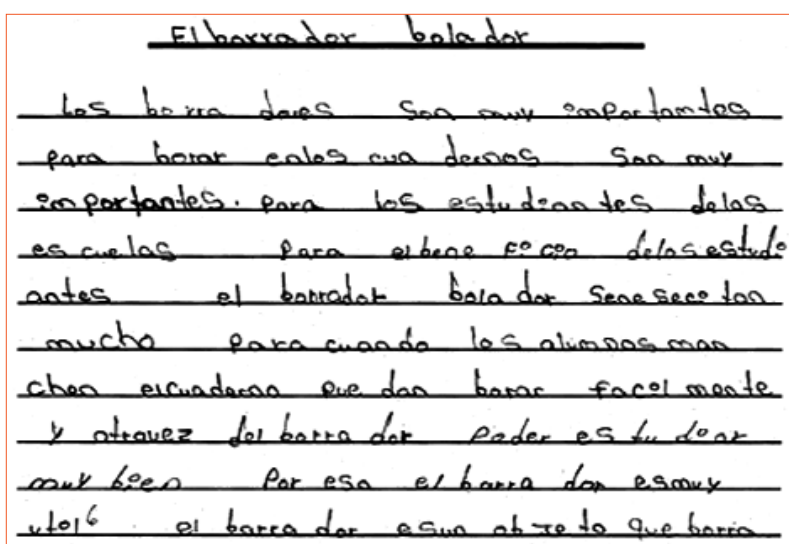 El borrador bolador
Los borra dores son muy importantes
para borar enlos cua dernos son muy
importantes. para los estudian tes delas
es cuelas para elbene ficio delos estudi
antes el borrador bora dor seneseci tan
mucho para cuando los alumnos man
chen elcuaderno pue dan borar facil mente
y atravez del borra dor poder es tu diar
muy bien por eso el borra dor esmuy
util6 el borra dor esun ob je to que borra